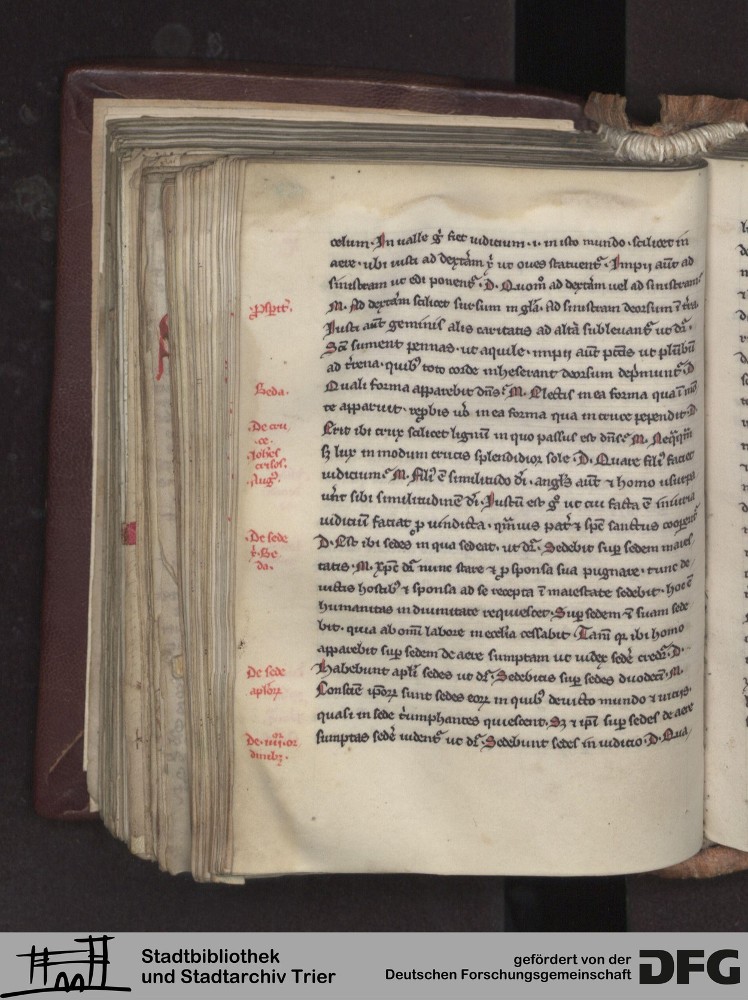 celum. In ualle g̊ fiet iudicium .i. in isto mundo. scilicet in
aere. ubi iusti ad dexterā ut oues statuent᷑. Impii aūt ad
sinistram ut edi ponent᷑. D. Quom̊ ad dexterā uel ad sinistram.
M. Ad dexterā scilicet sursum in gl̄ia. Ad sinistram deorsum ī t̄ra.
Iusti aūt geminis alis caritatis ad alta subleuant᷑ ut dr̄.
Sc̄i sument pennas. ut aquile. impii aūt pctīs ut plūbū
ad t̄rena. quibꝫ toto corde inheserant deorsum dep̄munt᷑. D.
Quali forma apparebit dn̄s. M. Electis in ea forma qua ī mō
te apparuit. rep̄bis ū in ea forma qua in cruce pependit. D.
Erit ibi crux scilicet lignū in quo passus est dn̄s. M. Neq̄q̄m
sꝫ lux in modum crucis splendidior sole. D. Quare filiꝰ faciet
iudicium. M. Filiꝰ ē similitudo di. angl̄s aūt ⁊ homo usurpa
uer̄t sibi similitudinē di. Iustū est g̊ ut cui facta ē iniuria
iudiciū faciat ꝑ uindicta. quāuis pat̄ ⁊ sp̄c sanctus cooꝑent᷑
D. Est ibi sedes in qua sedeat. ut dr̄. Sedebit suꝑ sedem maies
tatis. M. Xp̄c dr̄ nunc stare ⁊ ꝓ sponsa sua pugnare. tunc de
uictis hostibꝫ ⁊ sponsa ad se recepta ī maiestate sedebit. hoc ē
humanitas in diuinitate requiescet. Suꝑ sedem ē suam sede
bit. quia ab om̄i labore in ecclīa cessabit. Tam̄ qꝛ ibi homo
apparebit suꝑ sedem de aere sumptam ut iudex sedē credr̄. D.
Habebunt apl̄i sedes ut dr̄. Sedebitis suꝑ sedes duodecī. M.
Conscīe ip̄oꝝ sunt sedes eoꝝ in quibꝫ deuicto mundo ⁊ uiciis.
quasi in sede t̄umphantes quiescent. Sꝫ ⁊ ip̄i suꝑ sedes de aere
sumptas sedē uident᷑ ut dr̄. Sedebunt sedes in iudicio. D. Qua
Beda.
De cru
ce.
Ioh̄es
crisos.
Aug᷒.
De sede
⁊. Be
da.
De sede
apl̄oꝝ
De .iiii. or
dinibꝫ.
Stadtbibliothek
und Stadtarchiv Trier
gefördert von der
Deutschen Forschungsgemeinschaft
DFG